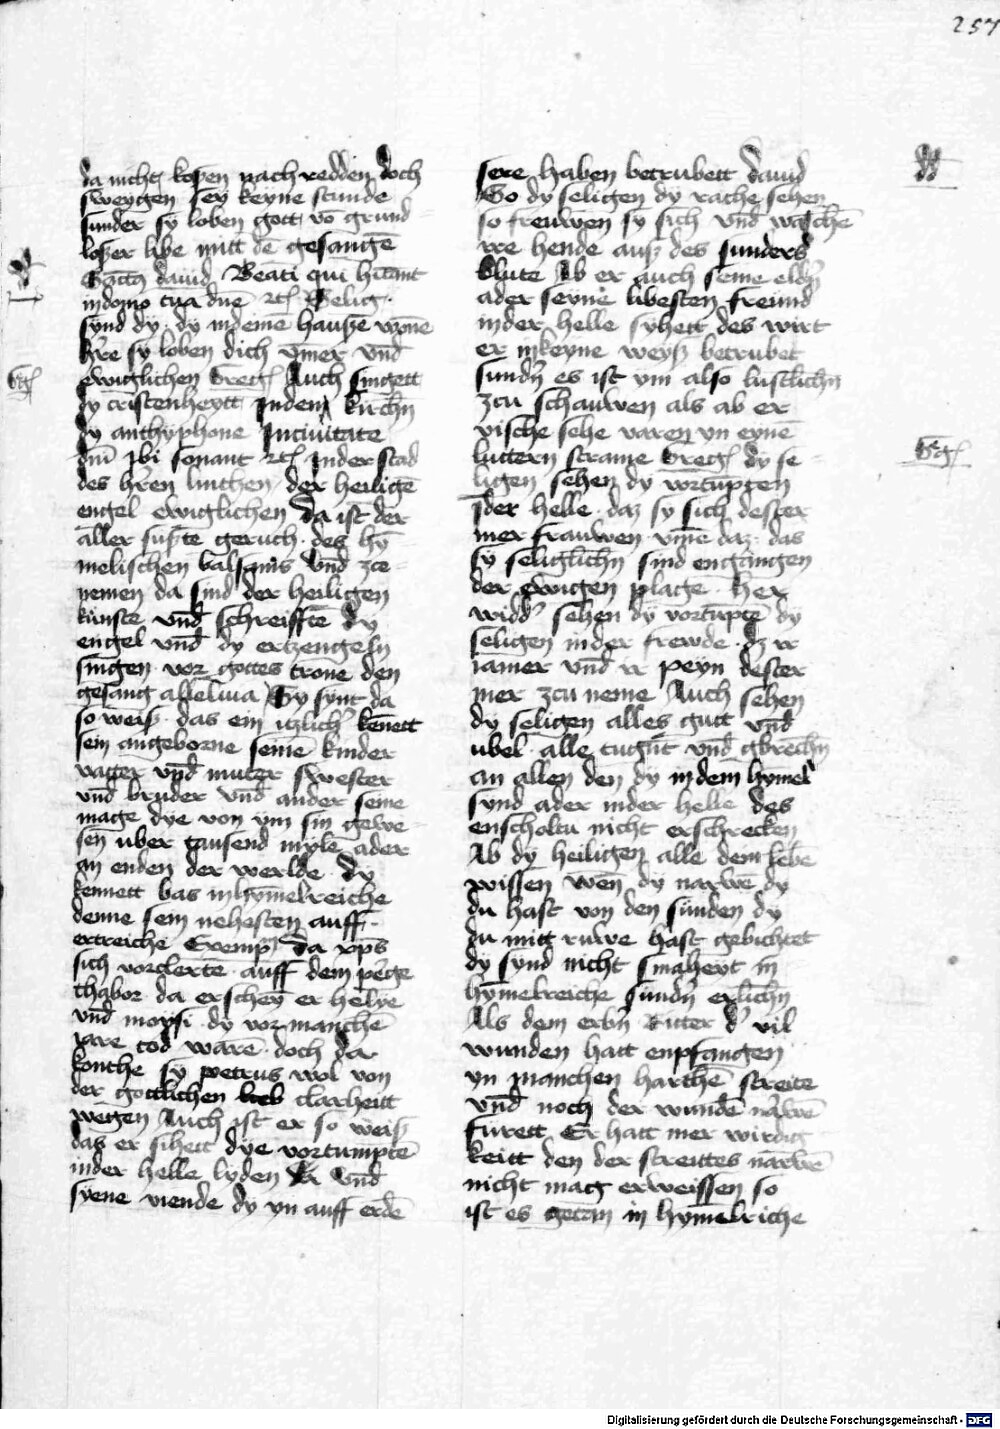 257
da nicht kosen nach redden doch
sweygen sey keyne stunde
sunder sy loben gott vō grund
loßer libe mitt dē gesangē
dauid Beati qui hītant
indomo tua dne ꝛcꝭ Selig
synd dy dy indeinē hausze wonē
hr̄e sy loben dich ym̄er vnd̄
ewiglichen Gregꝭ Auch singett
dy cristenheytt Inden kirchn̄
dy anthyphone Inciuitate
dn̄i Ibi sonant ꝛcꝭ Inder stad
des hr̄en luthen der heiligē
engel ewiglichen Da ist der
aller sußte geruch des hȳ
melischen balsams vnd zce
nemen da sind der heiligen
kunste vnd̄ schreifftē dy
engel vnd̄ dy ertzengeln
singen vor gottes trone den
gesang alleluia Sy synt da
so weiß das ein itzlichr̄ kenett
sein angeborne seine kinder
vatter vnd̄ muter swester
vnd̄ bruder vnd̄ ander seine
mage dye von ym sin gewe
sen vber tausend myle ader
an enden der werlde dy
kennett bas inhymelreiche
denne sein nehesten auff
ertreiche Exempꝉ Da xp̄s
sich vorclertē auff dem perge
thabor da erscheȳ er helye
vnd̄ moysi dy vor manchē
iare tod warē doch dar
konthe sy petrus wol von
der gottlichen clarheitt
wegen Auch ist er so weiß
das er sihett dye vortumptē
inder helle lyden vnd̄
syene viende dy yn auff erdē
sere haben betrubett dauid
So dy seligen dy rache sehen
so freuwen sy sich vnd̄ waschē
ire hende auß des sunders
blute Ab er auch seine eldn̄
ader seyne libesten freund
inder helle syhett des wirt
er inkeyne weyß betrubet
sundn̄ es ist ym also lustlichn̄
zcu schauwen als ab er
vische sehe varen yn eynē
luttern strame Gregꝭ dy se
ligen sehen dy vortumpten
Ider helle daz sy sich dester
mer frauwen vm̄e daz das
sy seliglichn̄ sind engangen
der ewigen plage Her
widdr̄ sehen dy vortumptē dy
seligen inder frewde dz ir
iamer vnd̄ ir peyn dester
mer zcu neme Auch sehen
dy seligen alles gutt vnd̄
ubel alle tugūt vnd̄ gbrechn̄
an allen den dy indem hymel
synd ader inder helle des
enscholtu nicht erschrecken
Ab dy heiligen alle dem lebē
wissen wen dy narwē dy
du hast von den sunden dy
du mitt ruwe hast gebichtet
dy synd nicht smaheyt in
hymelreiche sundn̄ erlichn̄
Als dem erbn̄ Ritter dr̄ vil
wunden hatt enpfangen
yn manchen harthē streite
vnd̄ noch der wundē narwē
furett Er hatt mer wirdig
keitt den der streittes narwē
nicht mag erweissen so
ist es getan in hymelriche
Gregꝭ
Gregꝭ
Digitalisierung gefördert durch die Deutsche Forschungsgemeinschaft - DFG